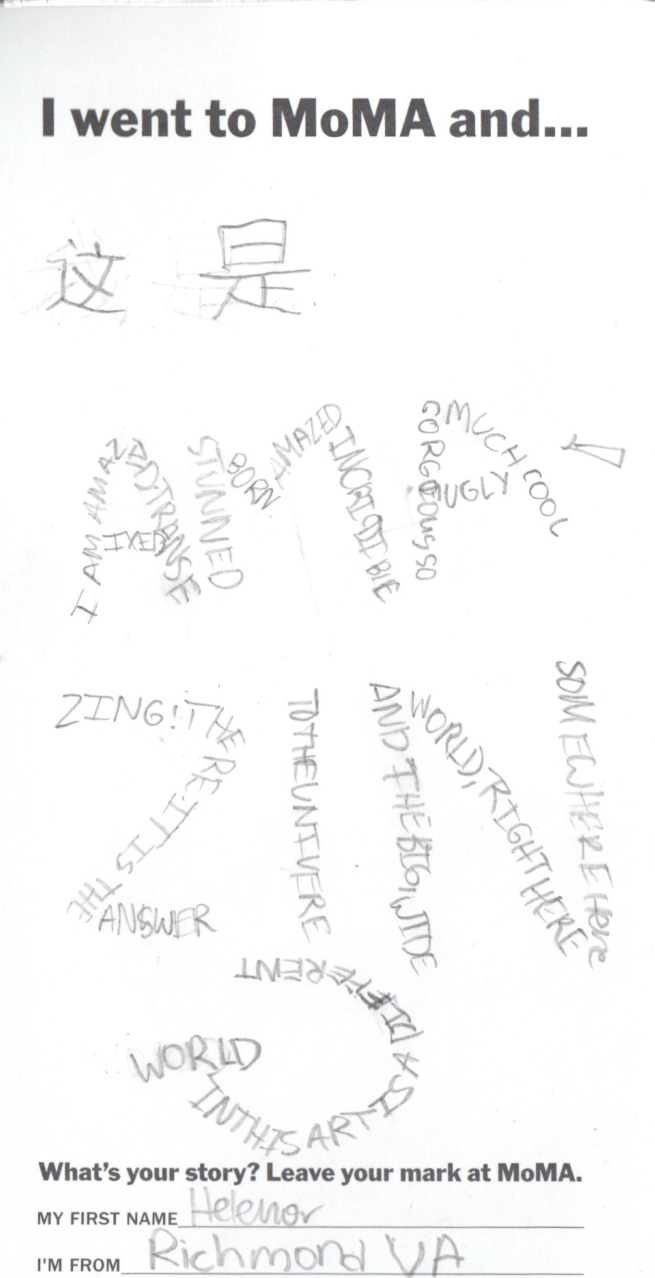 I went to MoMA and...
这是
I AM AMAZED TRANSE
IXED
STUNNED
BORN
AMAZED
INCRIDIBLE
GORGEOUS SO
MUCH COOL
UGLY
ZING! THERE IT IS THE
ANSWER
TO THE UNIVERE
AND THE BIG, WIDE
WORLD, RIGHT HERE
SOMEWHERE Here
DIFFERENT
IN THIS ART IS A
WORLD
What's your story? Leave your mark at MoMA.
MY FIRST NAME Helenor
I'M FROM Richmond VA